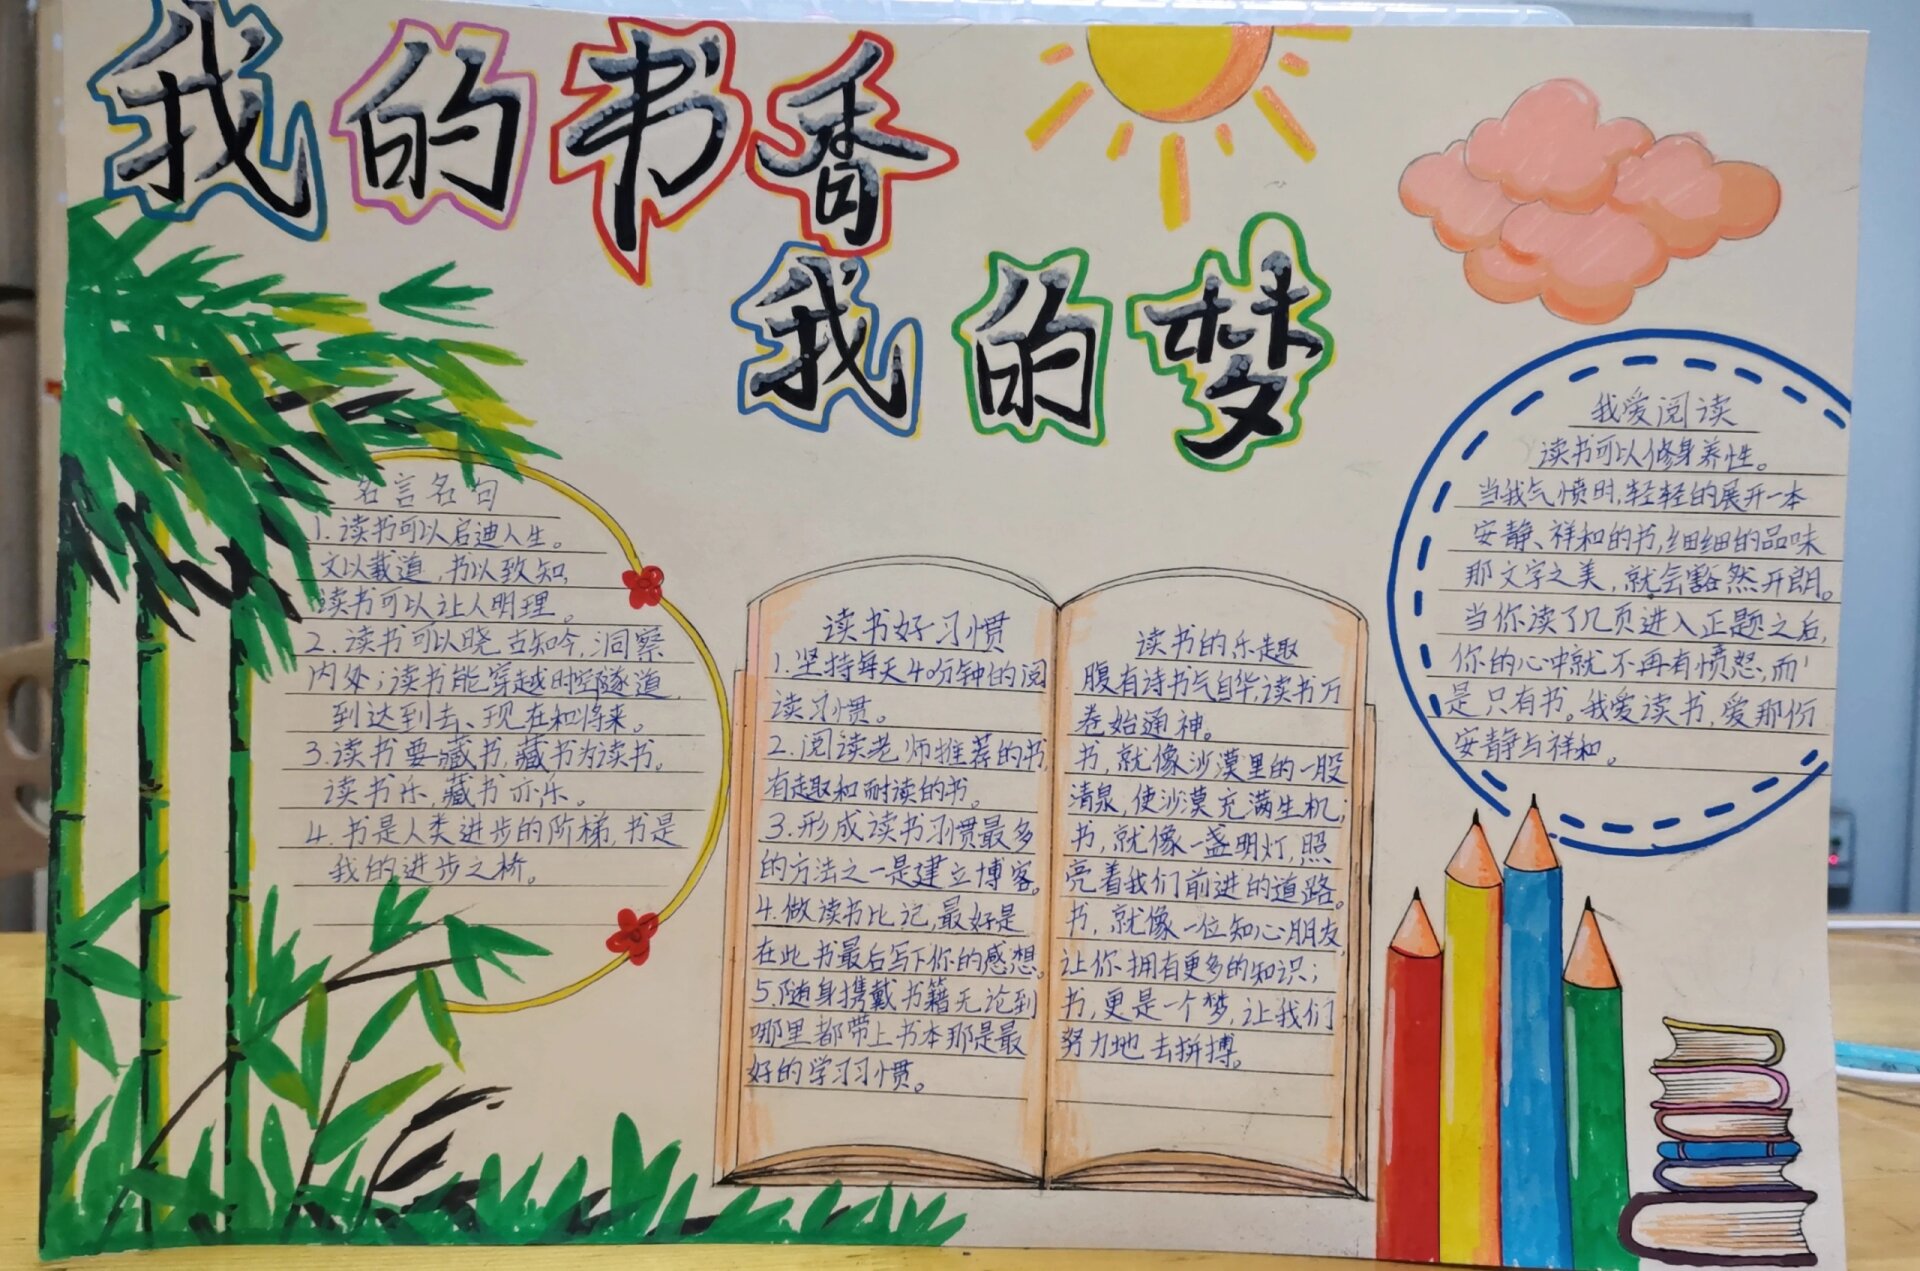 我的书香
我的梦
名言名句
1.读书可以启迪人生。
文以载道,书以致知,
读书可以让人明理。
2.读书可以晓古知今,洞察
内外;读书能穿越时空隧道,
到达到去、现在和将来。
3.读书要藏书,藏书为读书。
读书乐,藏书亦乐。
4.书是人类进步的阶梯,书是
我的进步之桥。
读书好习惯
1.坚持每天40分钟的阅
读习惯。
2.阅读老师推荐的书,
有趣和耐读的书。
3.形成读书习惯最多
的方法之一是建立博客。
4.做读书比记,最好是
在此书最后写下你的感想。
5.随身携戴书籍无论到
哪里都带上书本那是最
好的学习习惯。
读书的乐趣
腹有诗书气自华,读书万
卷始通神。
书,就像沙漠里的一股
清泉,使沙漠充满生机;
书,就像一盏明灯,照
亮着我们前进的道路。
书,就像一位知心朋友,
让你拥有更多的知识;
书,更是一个梦,让我们
努力地去拼搏。
我爱阅读
读书可以修身养性。
当我气愤时,轻轻的展开一本
安静、祥和的书,细细的品味
那文字之美,就会豁然开朗。
当你读了几页进入正题之后,
你的心中就不再有愤怒,而
是只有书。我爱读书,爱那份
安静与祥和。